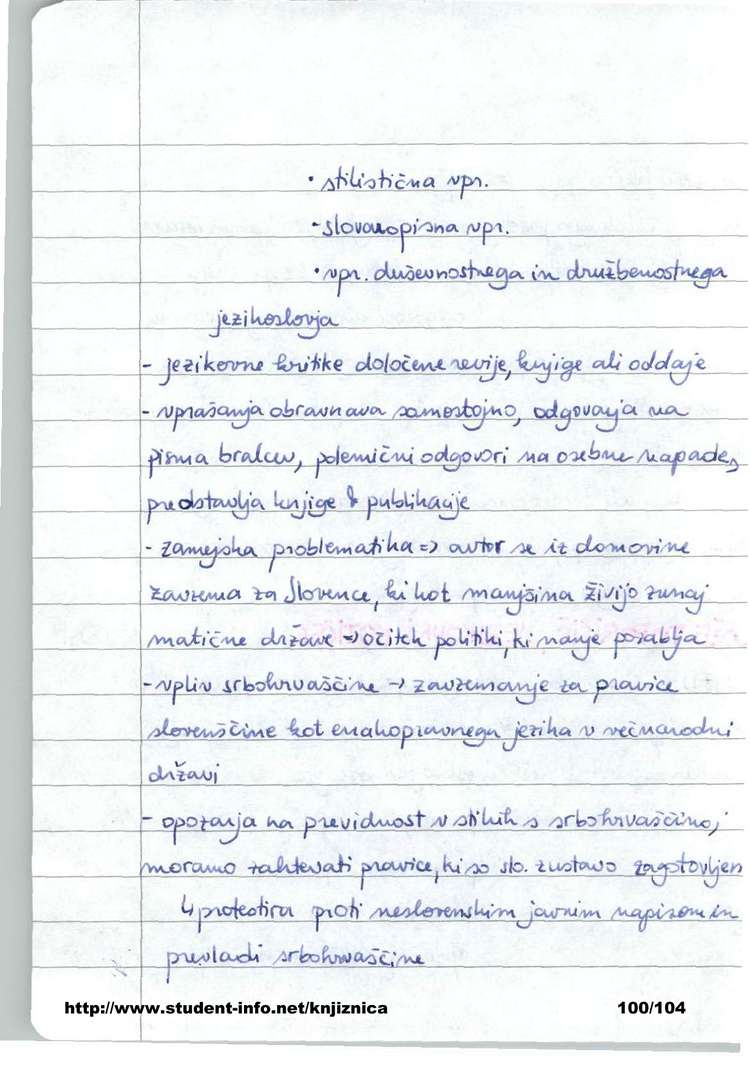 • stilistična vpr.
- slovaropisna vpr.
• vpr. duševnostnega in družbenostnega
jezikoslovja
- jezikovne kritike določene revije, knjige ali oddaje
- vprašanja obravnava samostojno, odgovarja na
pisma bralcev, polemični odgovori na osebne napade,
predstavlja knjige & publikacije
- zamejska problematika => avtor se iz domovine
zavzema za Slovence, ki kot manjšina živijo zunaj
matične države → očitek politiki, ki nanje pozablja
- vpliv srbohrvaščine → zavzemanje za pravice
slovenščine kot enakopravnega jezika v večnarodni
državi
- opozarja na previdnost v stikih s srbohrvaščino,
moramo zahtevati pravice, ki so slo. z ustavo zagotovljen
↳ protestira proti neslovenskim javnim napisom in
prevladi srbohrvaščine
http://www.student-info.net/knjiznica 100/104